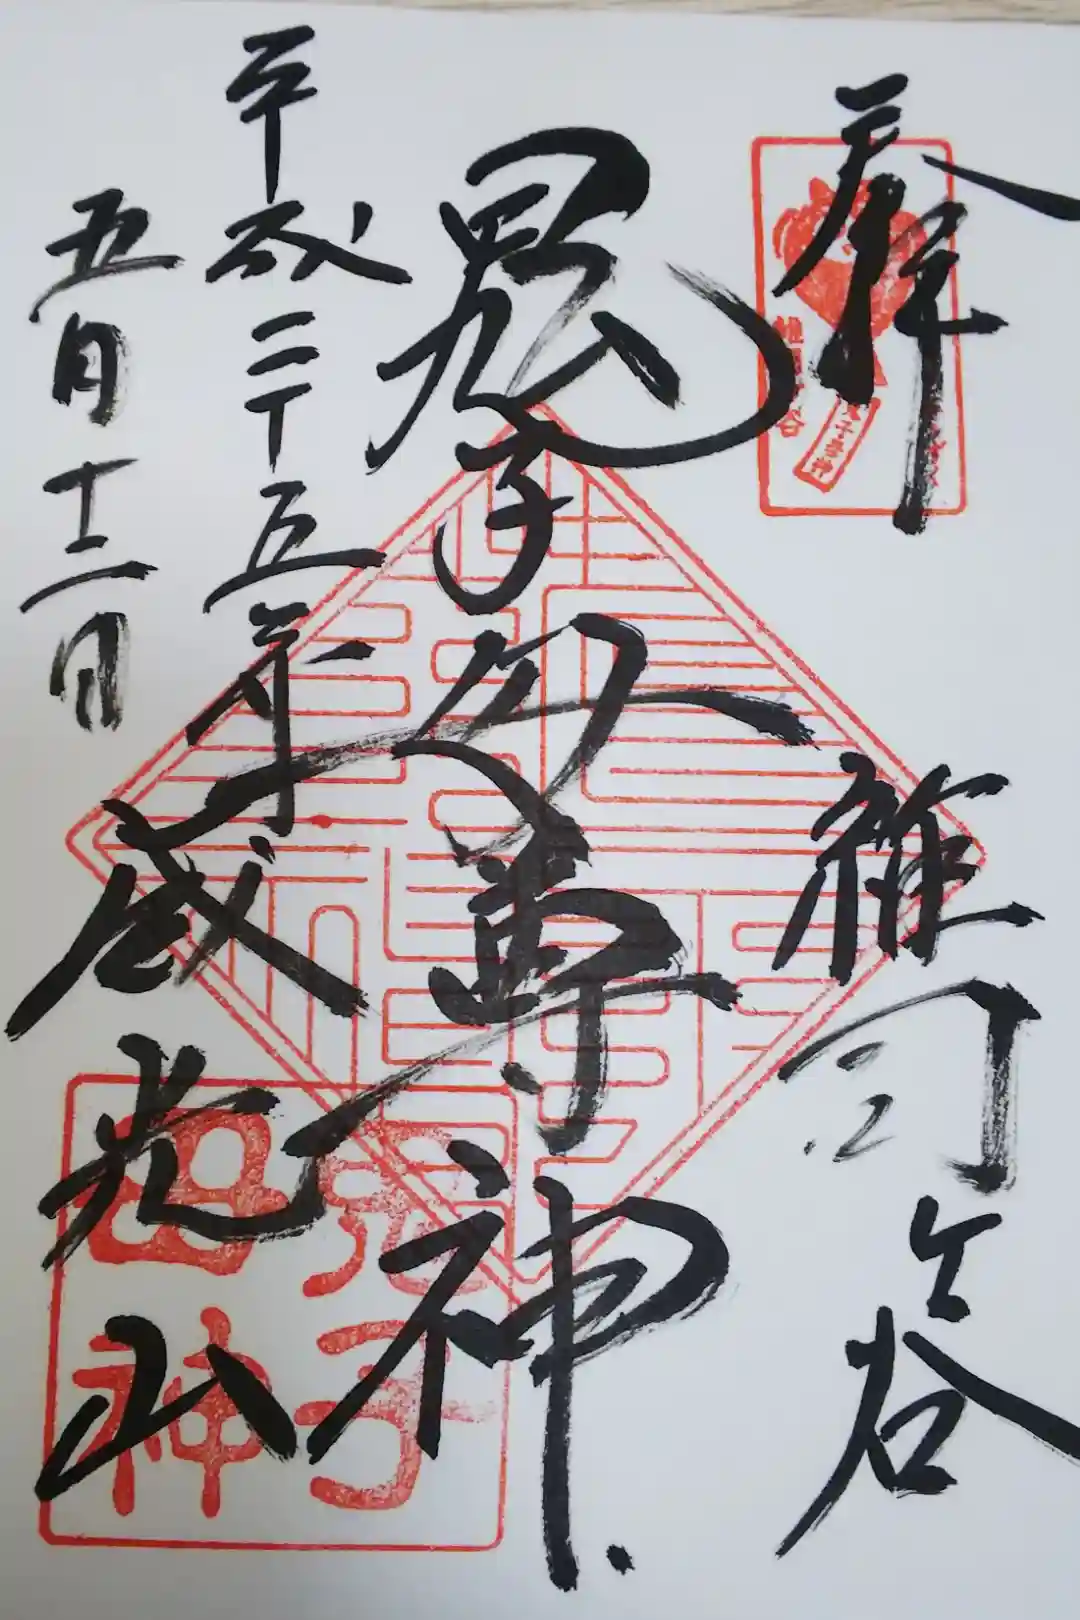 奉拝
雑司ヶ谷
鬼子母尊神
平成二十五年
五月十二日
威光山
鬼子
母神